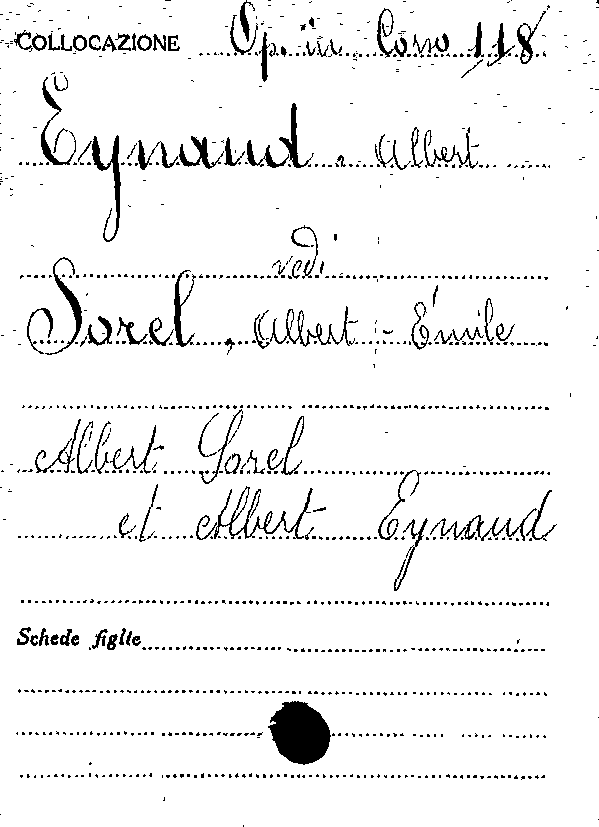 COLLOCAZIONE Op. in Corso 118
Eynaud, Albert
vedi
Sorel, Albert-Émile
Albert Sorel
et Albert Eynaud
Schede figlie